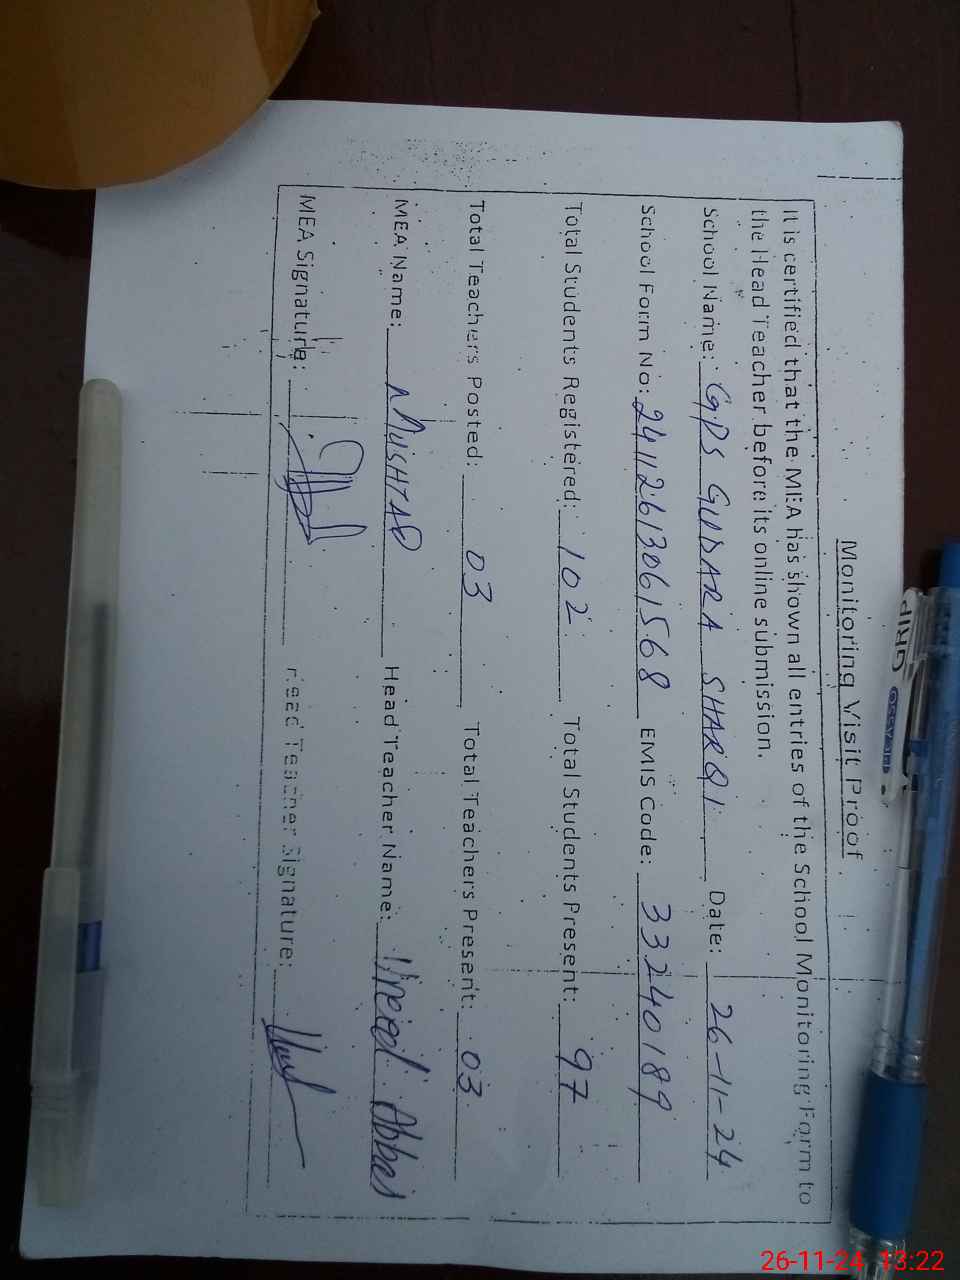 Monitoring Visit Proof
It is certified that the MEA has shown all entries of the School Monitoring Form to
the Head Teacher before its online submission.
School Name: GPS GUDARA SHARQI Date: 26-11-24
School Form No: 241126130615 68 EMIS Code: 33240189
Total Students Registered: 102 Total Students Present: 97
Total Teachers Posted: 03 Total Teachers Present: 03
MEA Name: MUSHTAQ Head Teacher Name: Abbas
MEA Signature: Head Teacher Signature:
GRIP
26-11-24 13:22